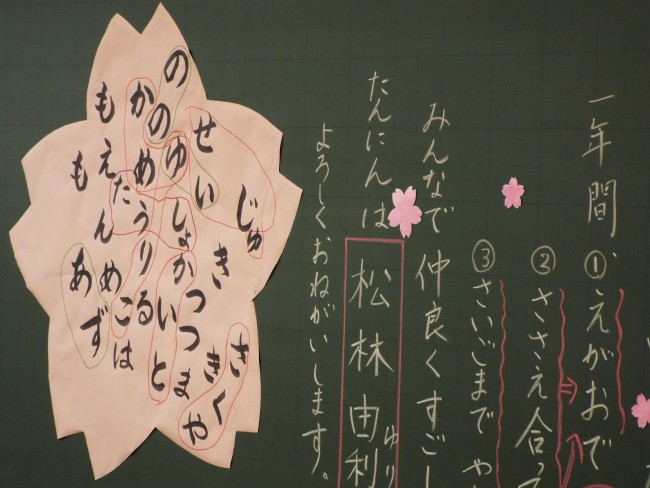 一年間、①えがおで
②ささえ合っ
③さいごまでや
みんなで仲良くすごし
たんにんは松林由利
ゆり
よろしくおねがいします。
じゅ
さくや
せい
きつつま
き
のの
ゆしょかいと
かめうりる
こは
もえたんめ
もも
あず